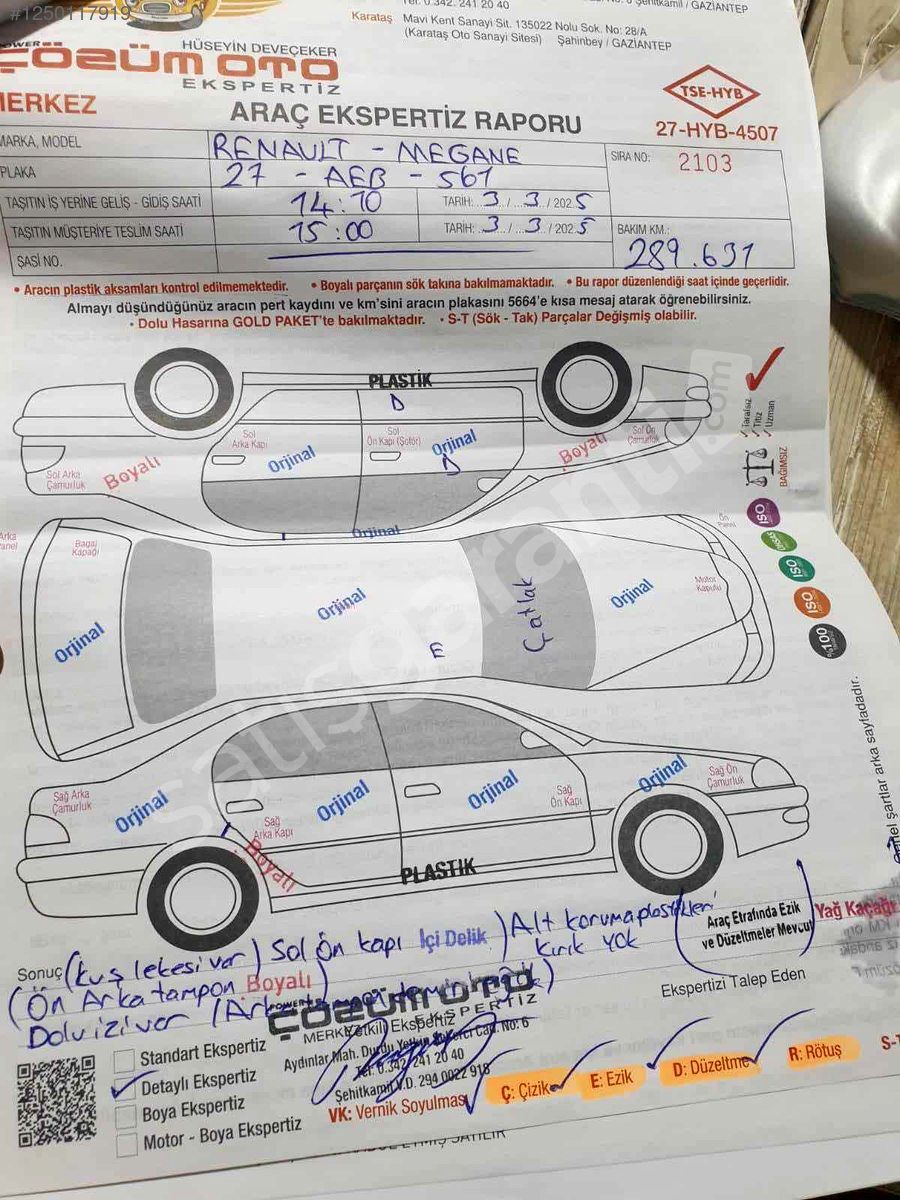 #1250117919
Tel: 0.342. 241 20 40
Şehitkamil / GAZİANTEP
Karataş Mavi Kent Sanayi Sit. 135022 Nolu Sok. No: 28/A
(Karataş Oto Sanayi Sitesi) Şahinbey / GAZİANTEP
HÜSEYİN DEVEÇEKER
POWER
ÇÖZÜM OTO
EKSPERTİZ
MERKEZ
ARAÇ EKSPERTİZ RAPORU
TSE-HYB
27-HYB-4507
MARKA, MODEL RENAULT - MEGANE
SIRA NO: 2103
PLAKA 27 - AEB - 561
TAŞITIN İŞ YERİNE GELİŞ - GİDİŞ SAATİ 14:10 TARİH: 3 / 3 / 2025
TAŞITIN MÜŞTERİYE TESLİM SAATİ 15:00 TARİH: 3 / 3 / 2025
BAKIM KM.: 289.631
ŞASİ NO.
• Aracın plastik aksamları kontrol edilmemektedir. • Boyalı parçanın sök takına bakılmamaktadır. • Bu rapor düzenlendiği saat içinde geçerlidir.
Almayı düşündüğünüz aracın pert kaydını ve km'sini aracın plakasını 5664'e kısa mesaj atarak öğrenebilirsiniz.
• Dolu Hasarına GOLD PAKET'te bakılmaktadır. • S-T (Sök - Tak) Parçalar Değişmiş olabilir.
PLASTİK
D
Sol Arka Kapı
Sol Ön Kapı (Şoför)
Sol Ön Çamurluk
Orjinal
Orjinal
D
Boyalı
Boyalı
Sol Arka Çamurluk
Tarafsız
Titiz
Uzman
BAĞIMSIZ
Orjinal
Arka Panel
Bagaj Kapağı
Ön Panel
Motor Kaputu
ISO
ISO
ISO
%100
Orjinal
Orjinal
E
Çatlak
Orjinal
Sağ Arka Çamurluk
Orjinal
Sağ Arka Kapı
Orjinal
Orjinal
Sağ Ön Kapı
Orjinal
Sağ Ön Çamurluk
Boyalı
PLASTİK
satisgaranti.com
Genel şartlar arka sayfadadır.
Sonuç (Kuş lekesi var) Sol Ön kapı İçi Delik ) Alt koruma plastikleri
kırık yok
Araç Etrafında Ezik
ve Düzeltmeler Mevcut
Yağ Kaçağı
(Ön Arka tampon Boyalı )
Dolu izi var (Arka
Ekspertizi Talep Eden
POWER
ÇÖZÜM OTO
EKSPERTİZ
MERKEZ
Yetkili Ekspertiz
Aydınlar Mah. Durdu Yetkin Cad. No: 6
Tel: 0.342 241 20 40
Şehitkamil V.D. 294 0022 918
Standart Ekspertiz
Detaylı Ekspertiz
Boya Ekspertiz
Motor - Boya Ekspertiz
VK: Vernik Soyulması
Ç: Çizik
E: Ezik
D: Düzeltme
R: Rötuş
S-T